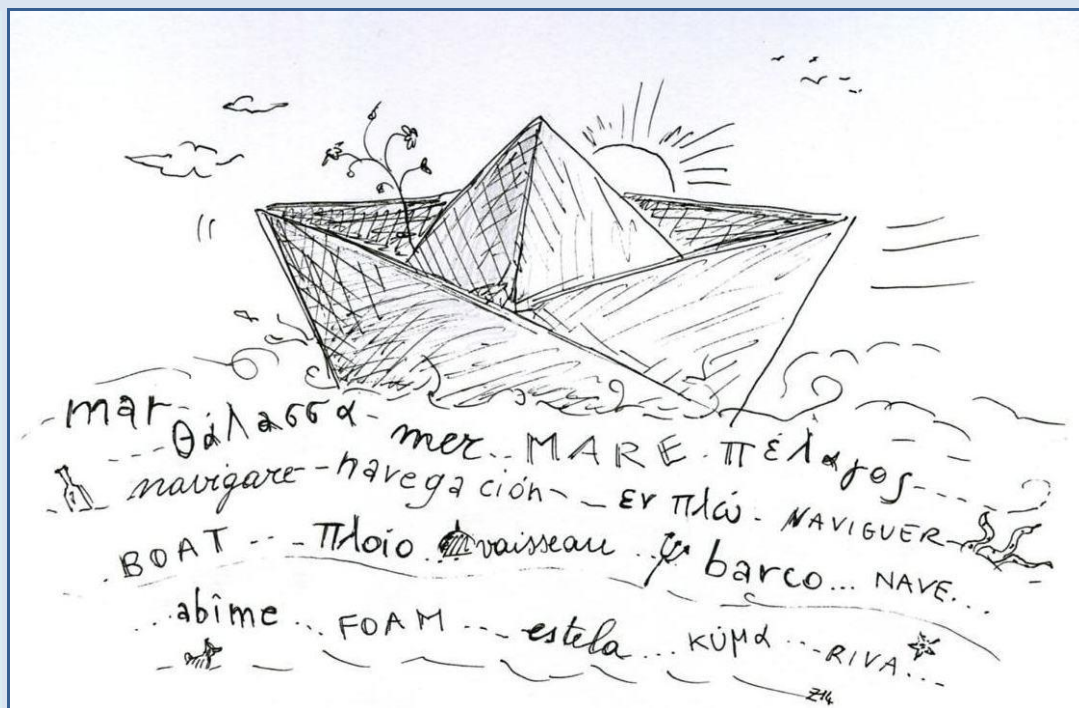 mar - θάλασσα - mer.. MARE - πέλαγος
navigare - navegación - εν πλώ - NAVIGUER
BOAT ... πλοίο vaisseau ... barco ... NAVE...
...abîme ... FOAM ... estela ... κύμα ... RIVA...
Z14